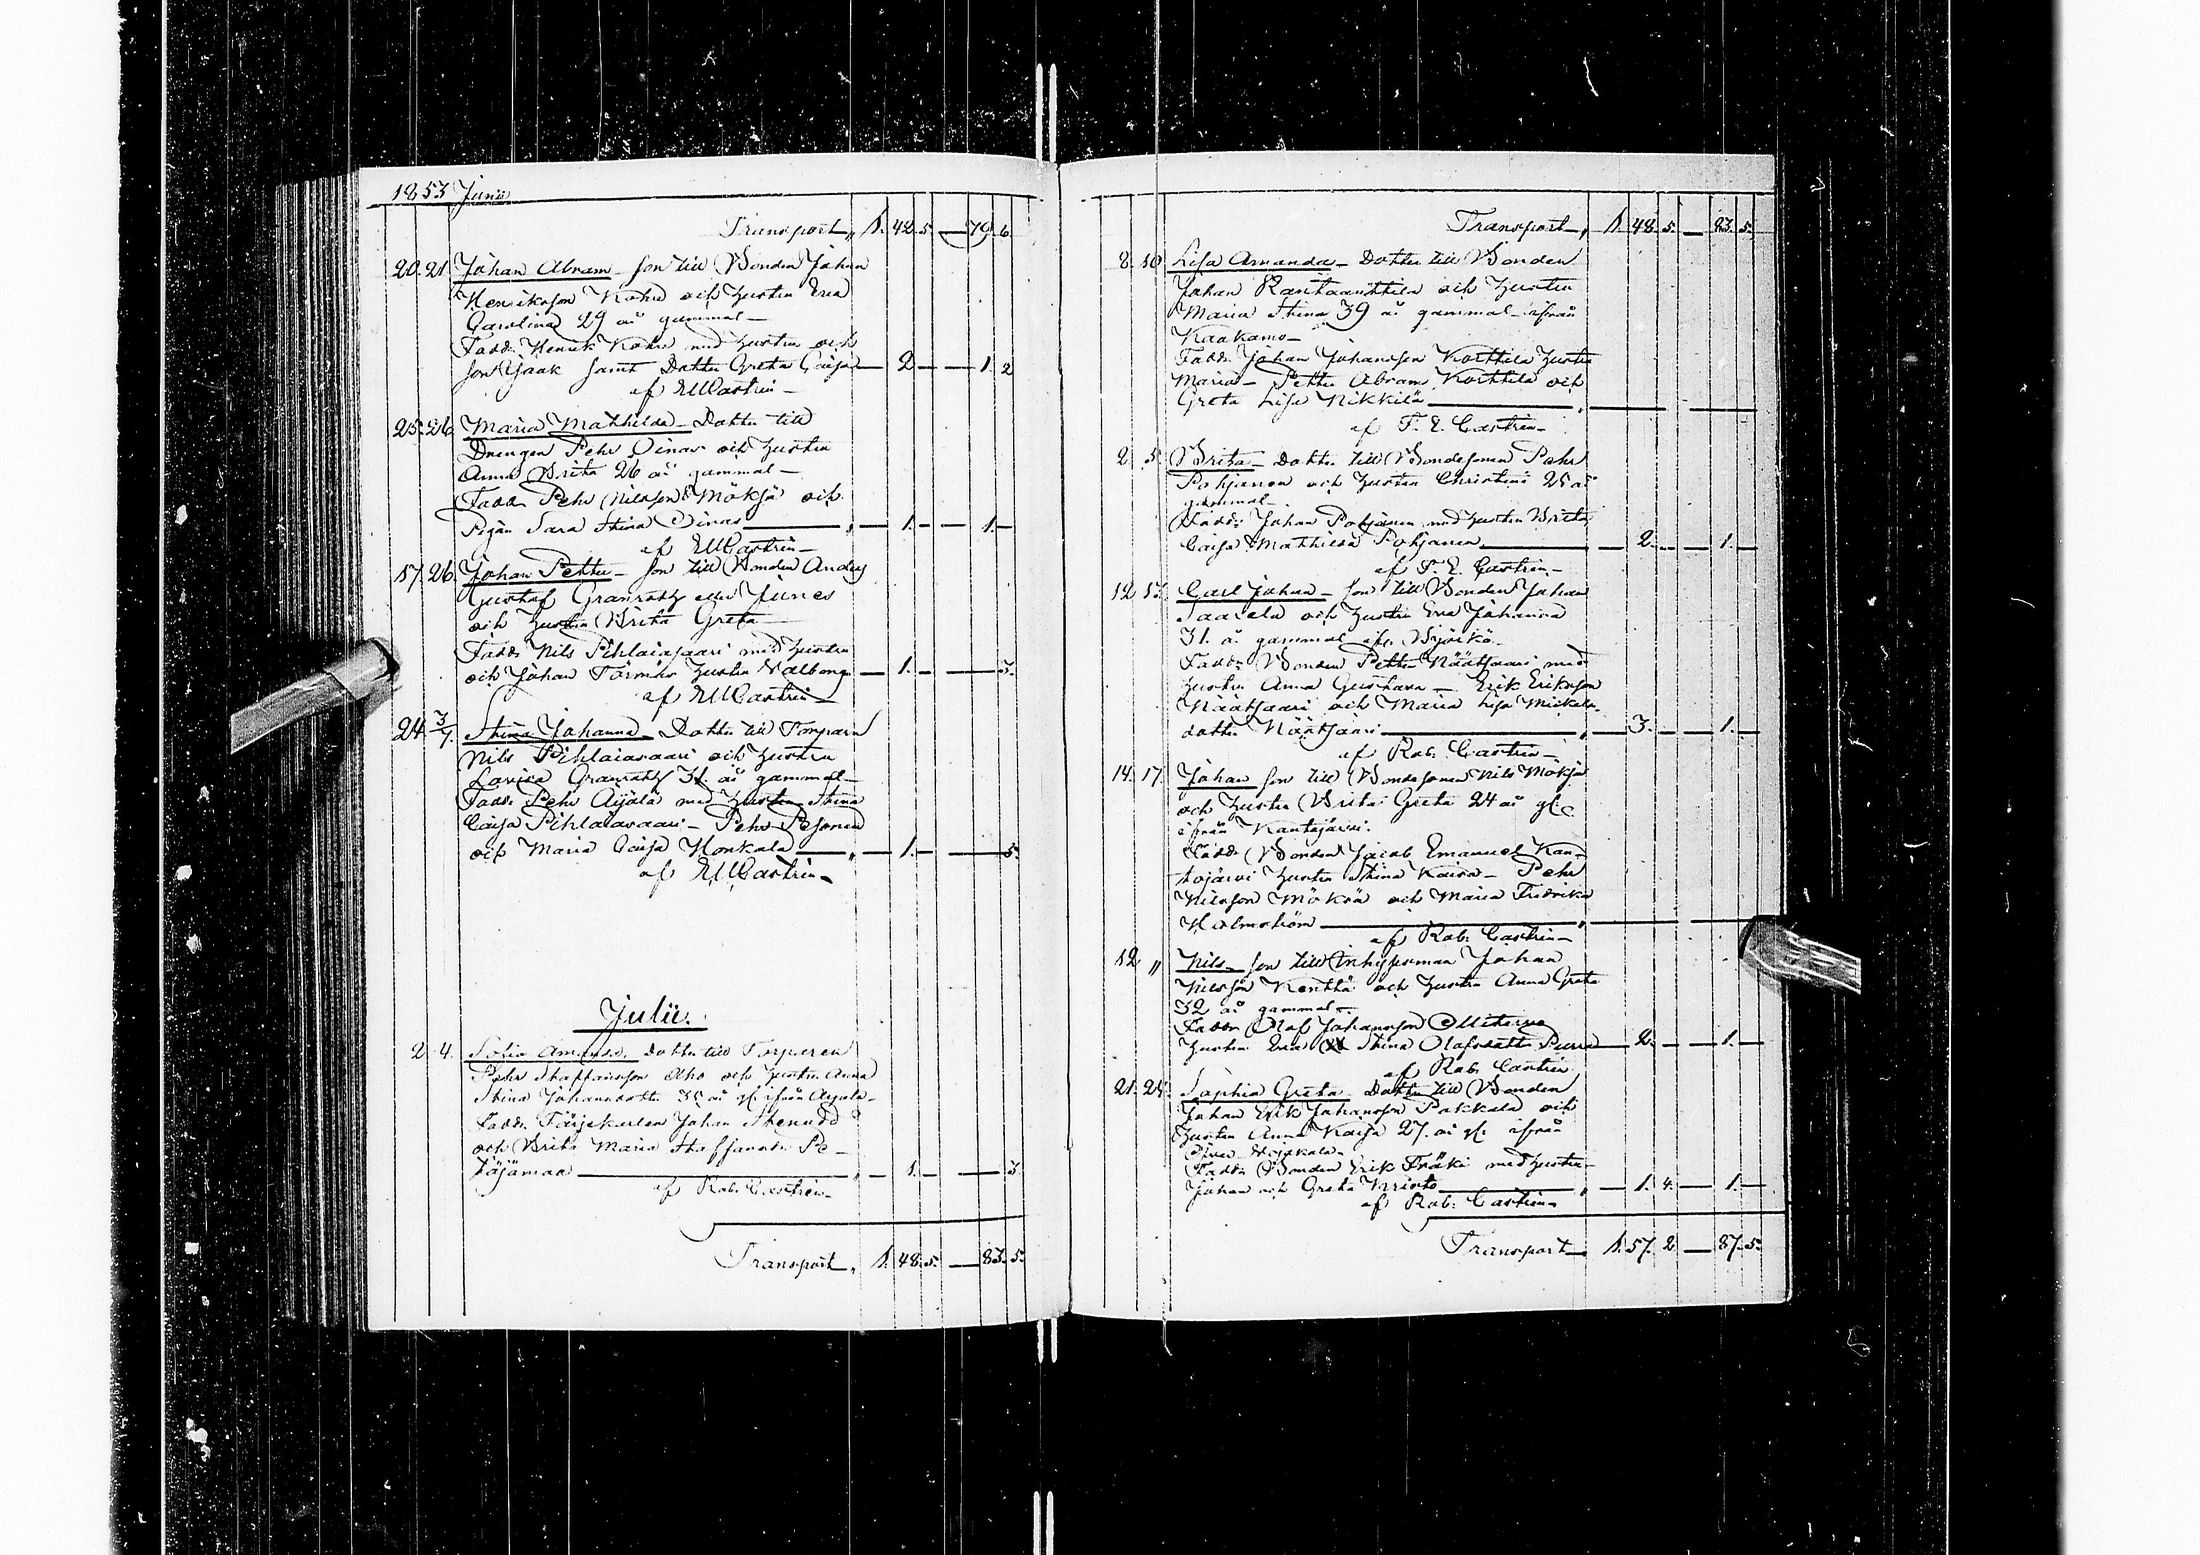 1853 Junii
Transport, 1. 42. 5. — 79. 6.
20. 21. Johan Abram – son till Bonden Johan
Henriksson Kohn och hustru Eva
Carolina 29 år gammal –
Fadd. Henrik med hustru och
son Isaak samt Dotter Greta Caisa — 2 — — 1. 2
af EMCastrén –
25. 26. Maria Mathilda – Dotter till
Drengen Pehr Oinas och hustru
Anna Brita 26 år gammal –
Fadd. Pehr Nilsson Mökjä och
Pigan Sara Stina Oinas — 1. — — 1. —
af EMCastrén –
17. 26. Johan Petter – son till Bonden Anders
Gustaf Granroth eller Junes
och hustru Brita Greta –
Fadd. Nils Pihlajasaari med hustru
och Johan Törmä hustru Walborg — 1. — — 3.
af EMCastrén
24. 3/7. Stina Johanna – Dotter till Torparn
Nils Pihlaiasaari och hustru
Lovisa Granroth 31. år gammal –
Fadd. Pehr Äijälä med hustru Stina
Caisa Pihlaiasaari – Pehr Pesonen
och Maria Caisa Honkala — 1. — — 5.
af EMCastrén –
Julii.
2. 4. Sofia Amanda. Dotter till Torparen
Petter Staffansson Aho och hustru Anna
Stina Johansdotter 35 år gl. ifrån
Fadd. Färjekarlen Johan Stenudd
och Brita Maria Staffansdr. Pe-
täjämaa — 1. — — 3.
af Rob. Castrén –
Transport, 1. 48. 5. — 83. 5.
Transport, 1. 48. 5. — 83. 5.
8. 10 Lisa Amanda – Dotter till Bonden
Johan Rautaanttila och hustru
Maria Stina 39 år gammal – ifrån
Kaakamo –
Fadd. Johan Johansson Korttila hustru
Maria – Petter Abram Korttila och
Greta Lisa Nikkilä —
af F. E. Castrén –
2. 5. Brita – Dotter till Bondesonen Pehr
Pohjanen och hustru Christina 25 år
gammal –
Fadd. Johan Pohjanen med hustru Brita
Caisa Mathilda Pohjanen — 2. — — 1. —
af F. E. Castrén –
12 13. Carl Johan – son till Bonden Johan
Saarela och hustru Eva Johanna
31. år gammal ifr.
Fadd. Bonden Petter Näätsaari med
hustru Anna Gustava – Erik Eriksson
Näätsaari och Maria Lisa Mickels-
dotter Näätsaari — 3. — — 1. —
af Rob. Castrén –
14. 17. Johan son till Bondesonen Nils Mökjä
och hustru Brita Greta 24 år gl.
ifrån Kantojärwi.
Fadd. Bonden Jacob Emanuel Kan-
tojärwi hustru Stina Kaisa – Pehr
Nilsson Mökjä och Maria Fredrika
Holmström —
af Rob. Castrén –
12 „ Nils – son till Inhysesman Johan
Nilsson Kenttä och hustru Anna Greta
32 år gammal –
Fadd. Olof Johansson
hustru Eva Stina Olofsdotter Purra — 2. — — 1. —
af Rob. Castrén
21. 24. Sophia Greta. Dotter till Bonden
Johan Erik Johansson Pakkala och
hustru Anna Kaisa 27. år gl. ifrån
Fadd. Bonden Erik Fräki med hustru –
Johan och Greta Kristo — 1. 4. — 1. —
af Rob. Castrén –
Transport 1. 57. 2 — 87. 5.